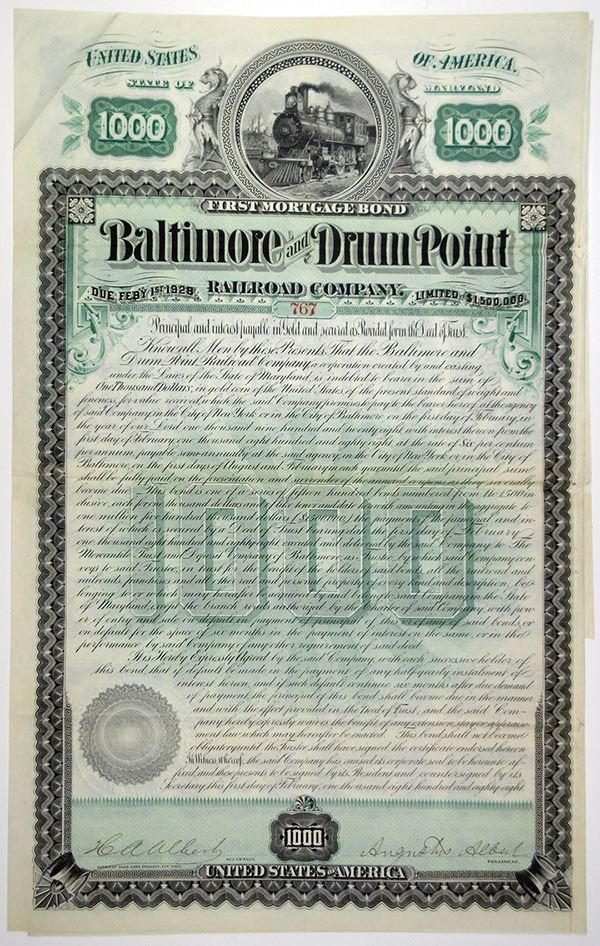 UNITED STATES OF AMERICA.
STATE OF MARYLAND
1000 1000
FIRST MORTGAGE BOND
Baltimore and Drum Point
DUE FEBY 1ST 1928. RAILROAD COMPANY. LIMITED TO $1,500,000.
767
Principal and interest payable in Gold and secured as Provided for in the Deed of Trust.
Know all Men by these Presents, That the Baltimore and
Drum Point Railroad Company, a corporation created by and existing
under the Laws of the State of Maryland, is indebted to bearer in the sum of
One Thousand Dollars, in gold coin of the United States of the present standard of weight and
fineness, for value received, which the said Company promises to pay to the bearer hereof at the agency
of said Company, in the City of New York or in the City of Baltimore, on the first day of February, in
the year of our Lord one thousand nine hundred and twenty eight, with interest thereon from the
first day of February, one thousand eight hundred and eighty eight, at the rate of six per centum
per annum, payable semi-annually, at the said agency, in the City of New York or in the City of
Baltimore, on the first days of August and February, in each year, until the said principal sum
shall be fully paid, on the presentation and surrender of coupons as they severally
become due. This bond is one of a series of fifteen hundred bonds numbered from 1 to 1,500 in-
clusive, each for one thousand dollars and of like tenor and date to with amounting in aggregate to
one million five hundred thousand dollars, the payment of principal and in-
terest of which is secured by Deed of Trust bearing date the first day of February
one thousand eight hundred and eighty eight, executed and delivered by the said Company to The
Mercantile Trust and Deposit Company of Baltimore, whereby the said Company con-
veys to said Trustee, in trust for the benefit of the holders of said bonds, all the railroad and
railroads, franchises and other real and personal property of every kind and description, be-
longing to or which may hereafter be acquired by and belong to said Company, in the State
of Maryland, except the branch roads authorized by the charter of said Company, with pow-
er of entry and sale on default in payment of the principal of this or any of said bonds, or
on default for the space of six months in the payment of interest on the same, or in the
performance by said Company of any other requirement of said deed.
It is Hereby Expressly Agreed by the said Company, with each successive holder of
this bond that if default be made in the payment of any half-yearly instalment of
interest hereon, and if such default continue six months after due demand
of payment, the principal of this bond shall become due in the manner
and with the effect provided in the Deed of Trust, and the said Com-
pany hereby expressly waives the benefit of any extension, stay or appraise-
ment law, which may hereafter be enacted. This bond shall not become
obligatory until the Trustee shall have signed the certificate endorsed hereon.
In Witness whereof, the said Company has caused its corporate seal to be hereunto af-
fixed and these presents to be signed by its President and countersigned by its
Secretary this first day of February, one thousand eight hundred and eighty eight.
1000
H. A. Albert Augustus Albert
SECRETARY. PRESIDENT.
1000
UNITED STATES OF AMERICA